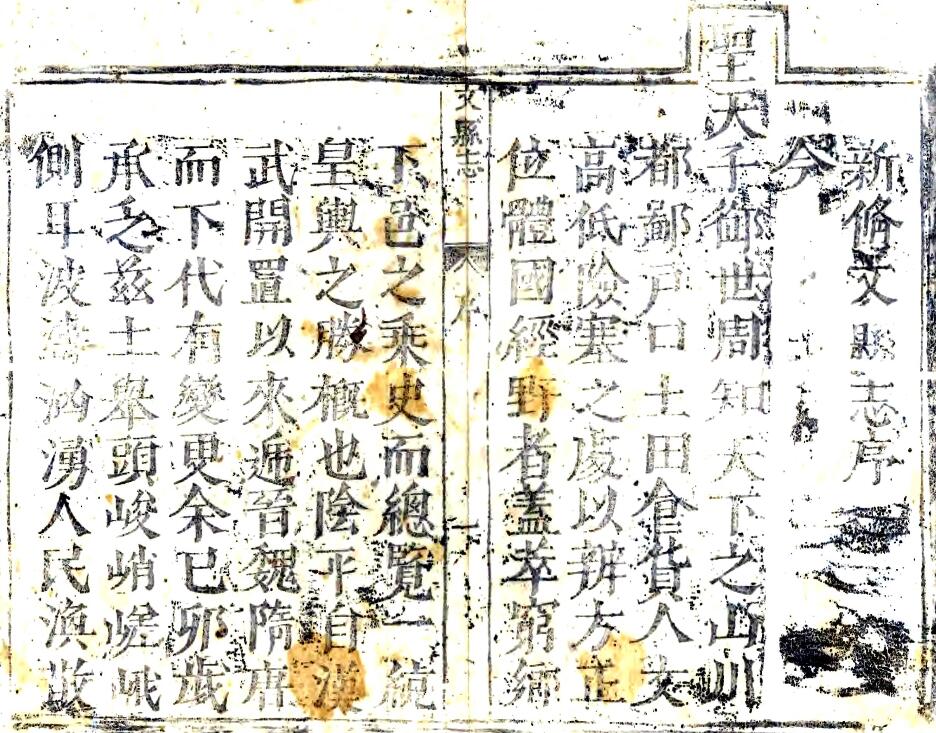 新脩文縣志序
今
聖天子御世周知天下之山川
都鄙戸口土田倉貨人文
高低險塞之處以辨方正
位體國經野者蓋萃窮鄉
文縣志
序
一
下邑之乘史而總覽一統
皇輿之勝概也陰平自漢
武開置以來遞晉魏隋唐
而下代有變更余己卯歲
承乏兹土舉頭峻峭嵯峨
側耳波濤洶湧人民渙散